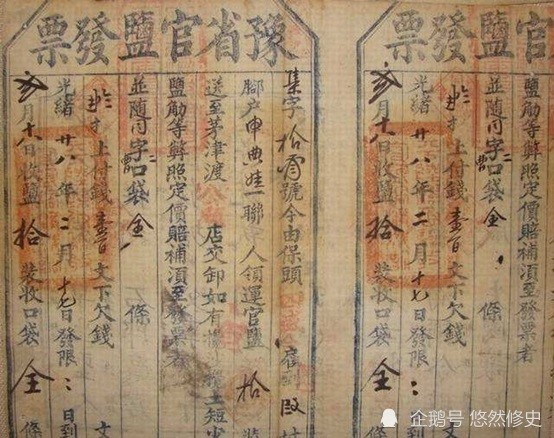 官鹽發票
鹽觔等弊照定價賠補須至發票者
並隨同字口袋全 條
上付錢壹百文下欠錢 文
光緒廿八年二月十七日發限 日到
月十八日收鹽拾裝收口袋全條
豫省官鹽發票
集字拾號今由保頭
腳户申典娃一聯人領運官鹽拾裝
送至茅津渡 店交卸如有 土短少
鹽觔等弊照定價賠補須至發票者
並隨同字口袋全 條
上付錢壹百文下欠錢 文
光緒廿八年二月十七日發限 日到
月十八日收鹽拾裝收口袋全條
企鹅号 悠然修史